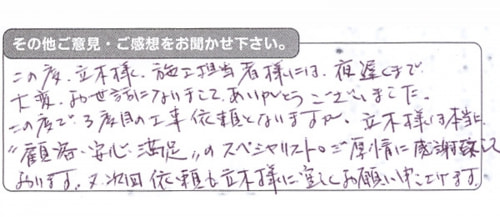 その他ご意見・ご感想をお聞かせ下さい。
この度、立木様、施工担当者様には、夜遅くまで
大変、お世話になりまして、ありがとうございました。
この度で3度目の工事依頼となりますが、立木様は本当に
"顧客・安心・満足"のスペシャリスト。ご厚情に感謝致して
おります。又、次回依頼も立木様に宜しくお願い申し上げます。